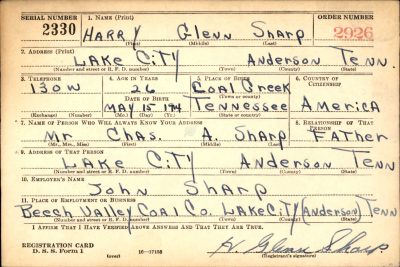 SERIAL NUMBER 1. NAME (Print) ORDER NUMBER
2330 HARRY Glenn Sharp 2926
(First) (Middle) (Last)
2. ADDRESS (Print)
LAKE CITY Anderson Tenn.
(Number and street or R. F. D. number) (Town) (County) (State)
3. TELEPHONE 4. AGE IN YEARS 5. PLACE OF BIRTH 6. COUNTRY OF CITIZENSHIP
130W 26 Coal Creek
DATE OF BIRTH (Town or county)
MAY 15 Tennessee America
(Exchange) (Number) (Mo.) (Day) (Yr.) (State or country)
7. NAME OF PERSON WHO WILL ALWAYS KNOW YOUR ADDRESS 8. RELATIONSHIP OF THAT PERSON
Mr. Chas. A. Sharp Father
(Mr., Mrs., Miss) (First) (Middle) (Last)
9. ADDRESS OF THAT PERSON
LAKE CITY Anderson Tenn
(Number and street or R. F. D. number) (Town) (County) (State)
10. EMPLOYER'S NAME
John Sharp
11. PLACE OF EMPLOYMENT OR BUSINESS
Beech Valley Coal Co. LAKE CITY (Anderson) Tenn
(Number and street or R. F. D. number) (Town) (County) (State)
I AFFIRM THAT I HAVE VERIFIED ABOVE ANSWERS AND THAT THEY ARE TRUE.
REGISTRATION CARD
D. S. S. Form 1 (over) 16—17105 H. Glenn Sharp
(Registrant's signature)